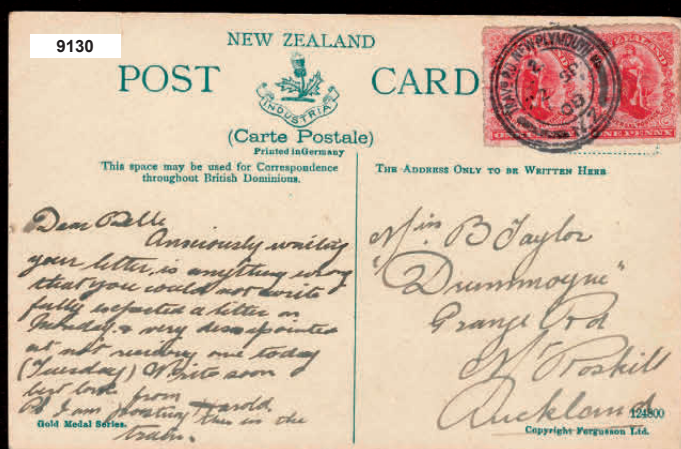 9130
NEW ZEALAND
POST CARD
INDUSTRIA
(Carte Postale)
Printed in Germany
This space may be used for Correspondence
throughout British Dominions.
THE ADDRESS ONLY TO BE WRITTEN HERE
NEW PLYMOUTH
N.Z
ONE PENNY
Dear Belle
Anxiously waiting
your letter, is anything wrong
that you could not write
fully expected a letter on
Monday & very disappointed
at not receiving one today
(Tuesday) Write soon
best love from
Harold.
PS I am posting this in the
train.
Miss B Taylor
"Drummoyne"
Grange Rd
Mt Roskill
Auckland
Gold Medal Series.
124800
Copyright Fergusson Ltd.